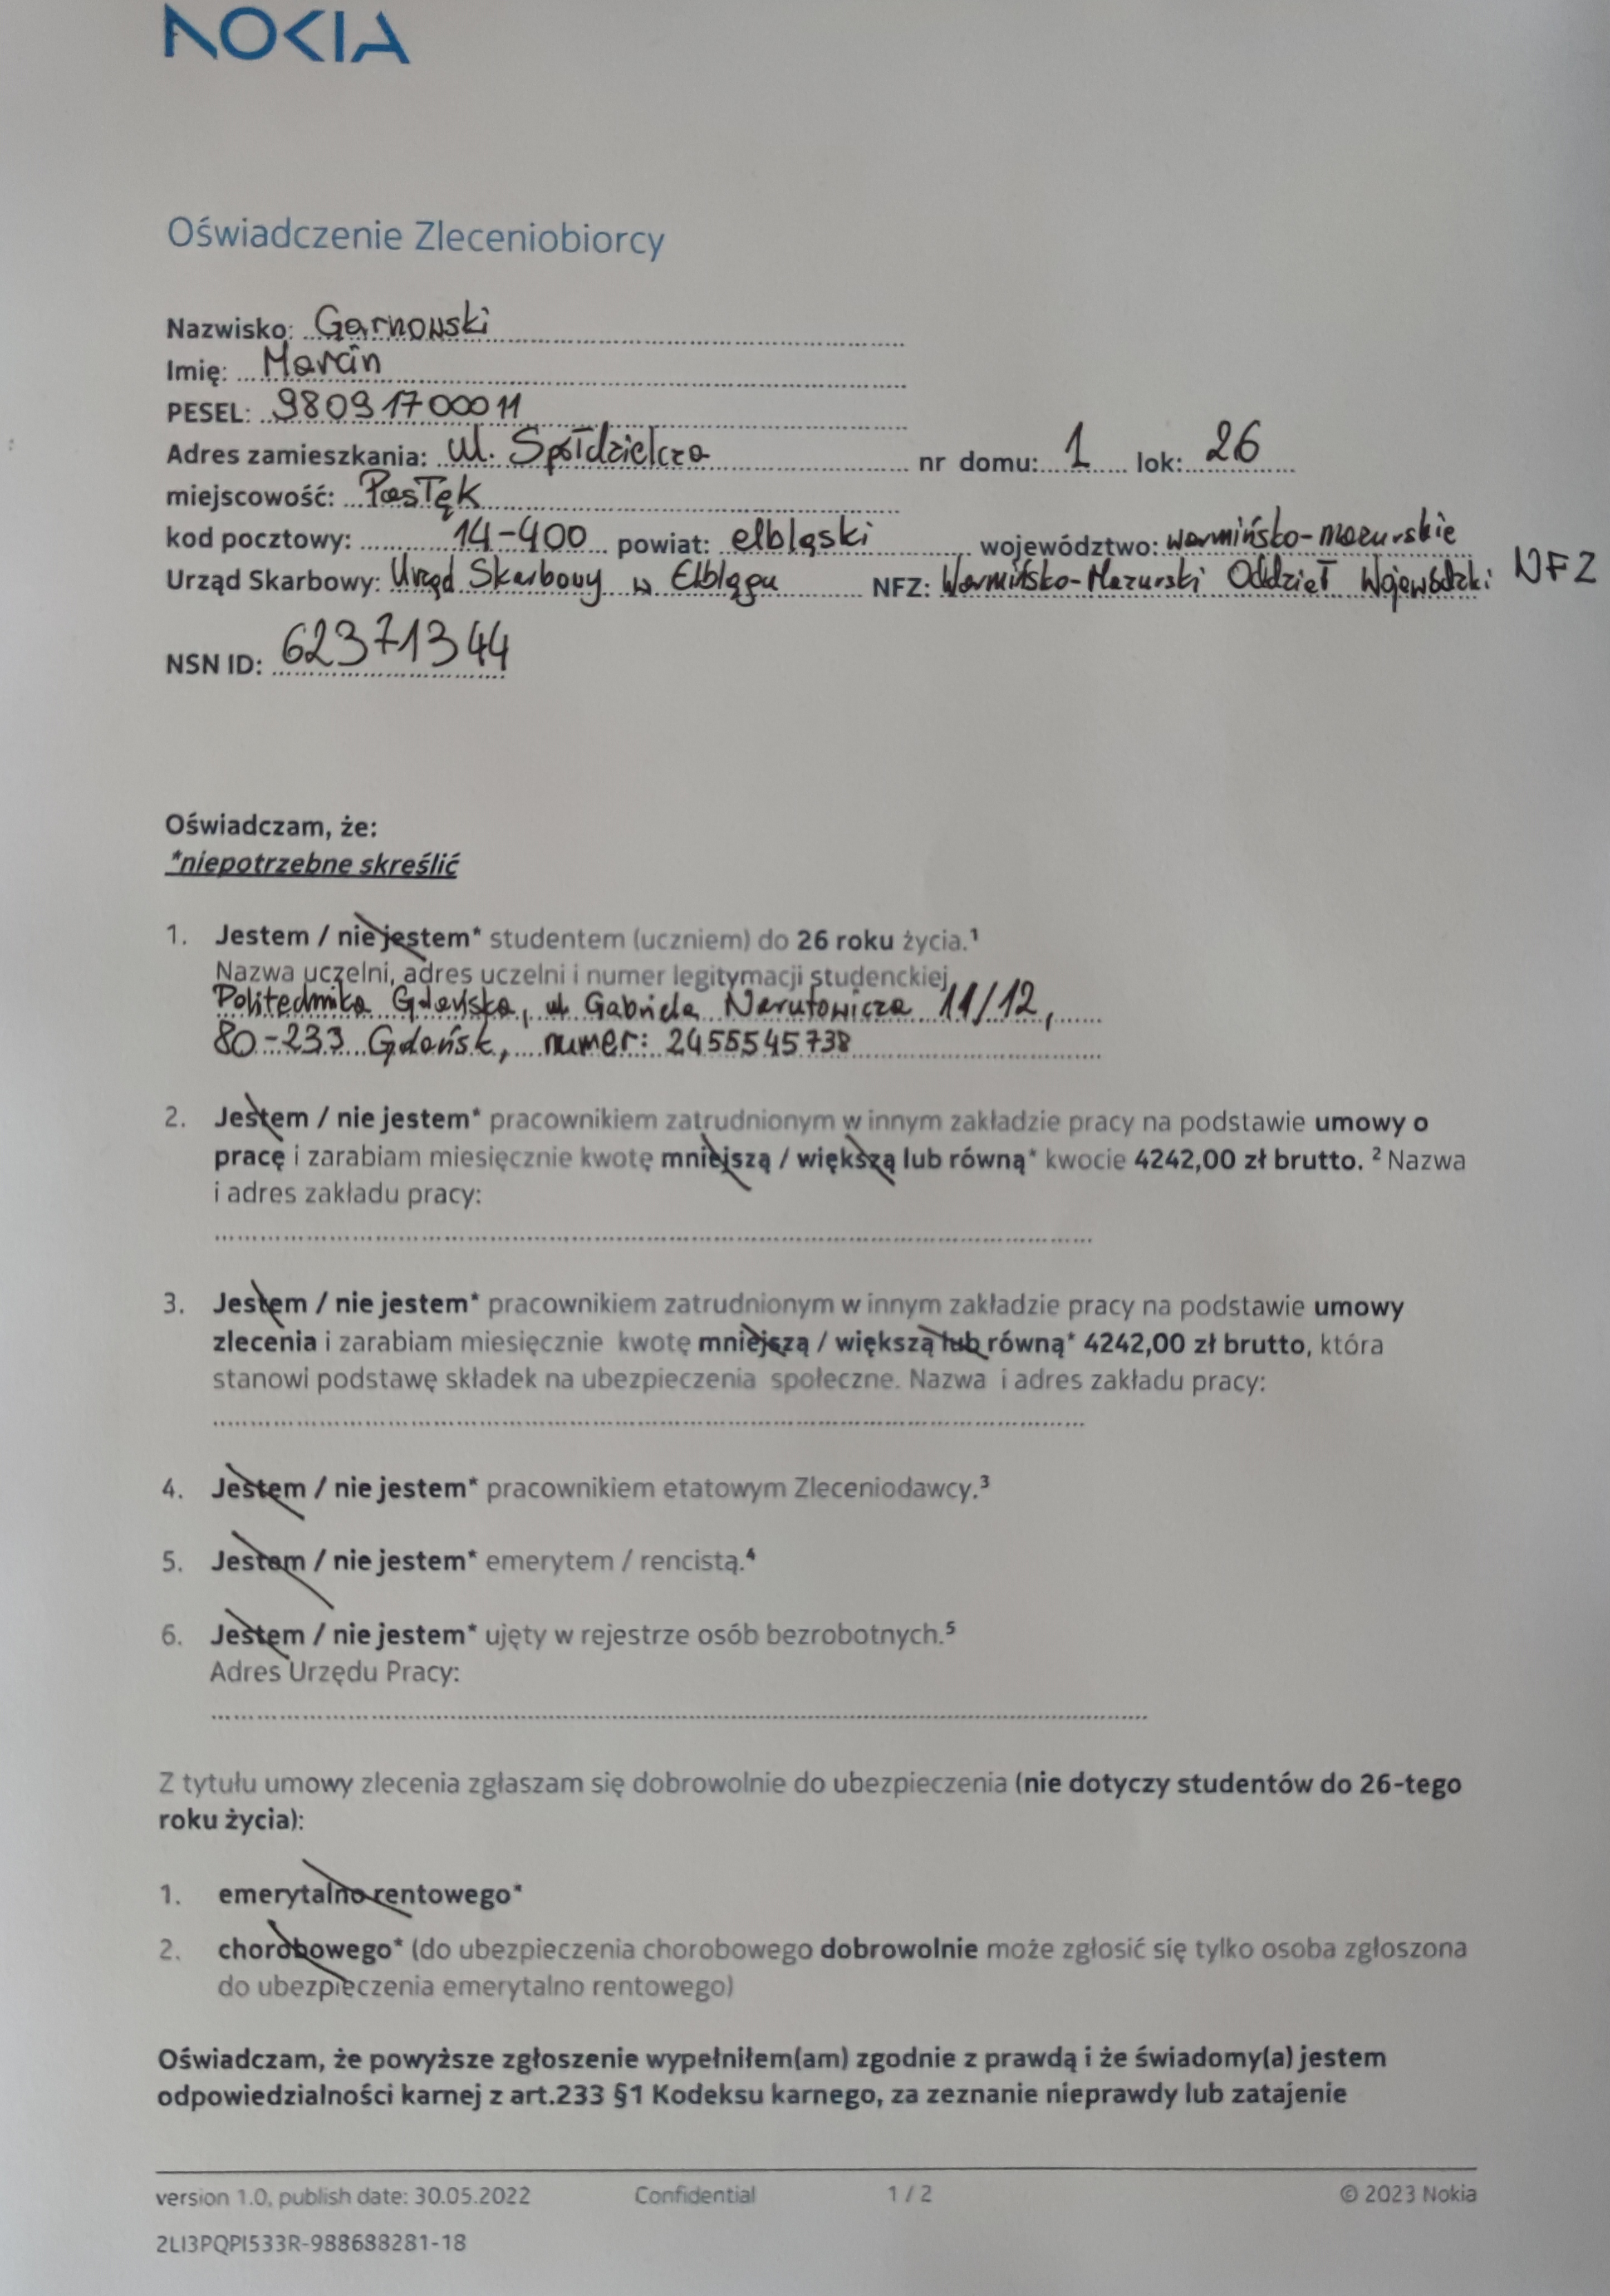 NOKIA
Oświadczenie Zleceniobiorcy
Nazwisko: Garnowski
Imię: Marcin
PESEL: 98091700011
Adres zamieszkania: ul. Spółdzielcza nr domu: 1 lok: 26
miejscowość: Pasłęk
kod pocztowy: 14-400 powiat: elbląski województwo: warmińsko-mazurskie
Urząd Skarbowy: Urząd Skarbowy w Elblągu NFZ: Warmińsko-Mazurski Oddział Wojewódzki NFZ
NSN ID: 62371344
Oświadczam, że:
*niepotrzebne skreślić
1. Jestem / nie jestem* studentem (uczniem) do 26 roku życia.¹
Nazwa uczelni, adres uczelni i numer legitymacji studenckiej
Politechnika Gdańska, ul. Gabriela Narutowicza 11/12,
80-233 Gdańsk, numer: 2455545738
2. Jestem / nie jestem* pracownikiem zatrudnionym w innym zakładzie pracy na podstawie umowy o
pracę i zarabiam miesięcznie kwotę mniejszą / większą lub równą* kwocie 4242,00 zł brutto. ² Nazwa
i adres zakładu pracy:
3. Jestem / nie jestem* pracownikiem zatrudnionym w innym zakładzie pracy na podstawie umowy
zlecenia i zarabiam miesięcznie kwotę mniejszą / większą lub równą* 4242,00 zł brutto, która
stanowi podstawę składek na ubezpieczenia społeczne. Nazwa i adres zakładu pracy:
4. Jestem / nie jestem* pracownikiem etatowym Zleceniodawcy.³
5. Jestem / nie jestem* emerytem / rencistą.⁴
6. Jestem / nie jestem* ujęty w rejestrze osób bezrobotnych.⁵
Adres Urzędu Pracy:
Z tytułu umowy zlecenia zgłaszam się dobrowolnie do ubezpieczenia (nie dotyczy studentów do 26-tego
roku życia):
1. emerytalno rentowego*
2. chorobowego* (do ubezpieczenia chorobowego dobrowolnie może zgłosić się tylko osoba zgłoszona
do ubezpieczenia emerytalno rentowego)
Oświadczam, że powyższe zgłoszenie wypełniłem(am) zgodnie z prawdą i że świadomy(a) jestem
odpowiedzialności karnej z art.233 §1 Kodeksu karnego, za zeznanie nieprawdy lub zatajenie
version 1.0, publish date: 30.05.2022 Confidential 1 / 2 © 2023 Nokia
2LI3PQPI533R-988688281-18